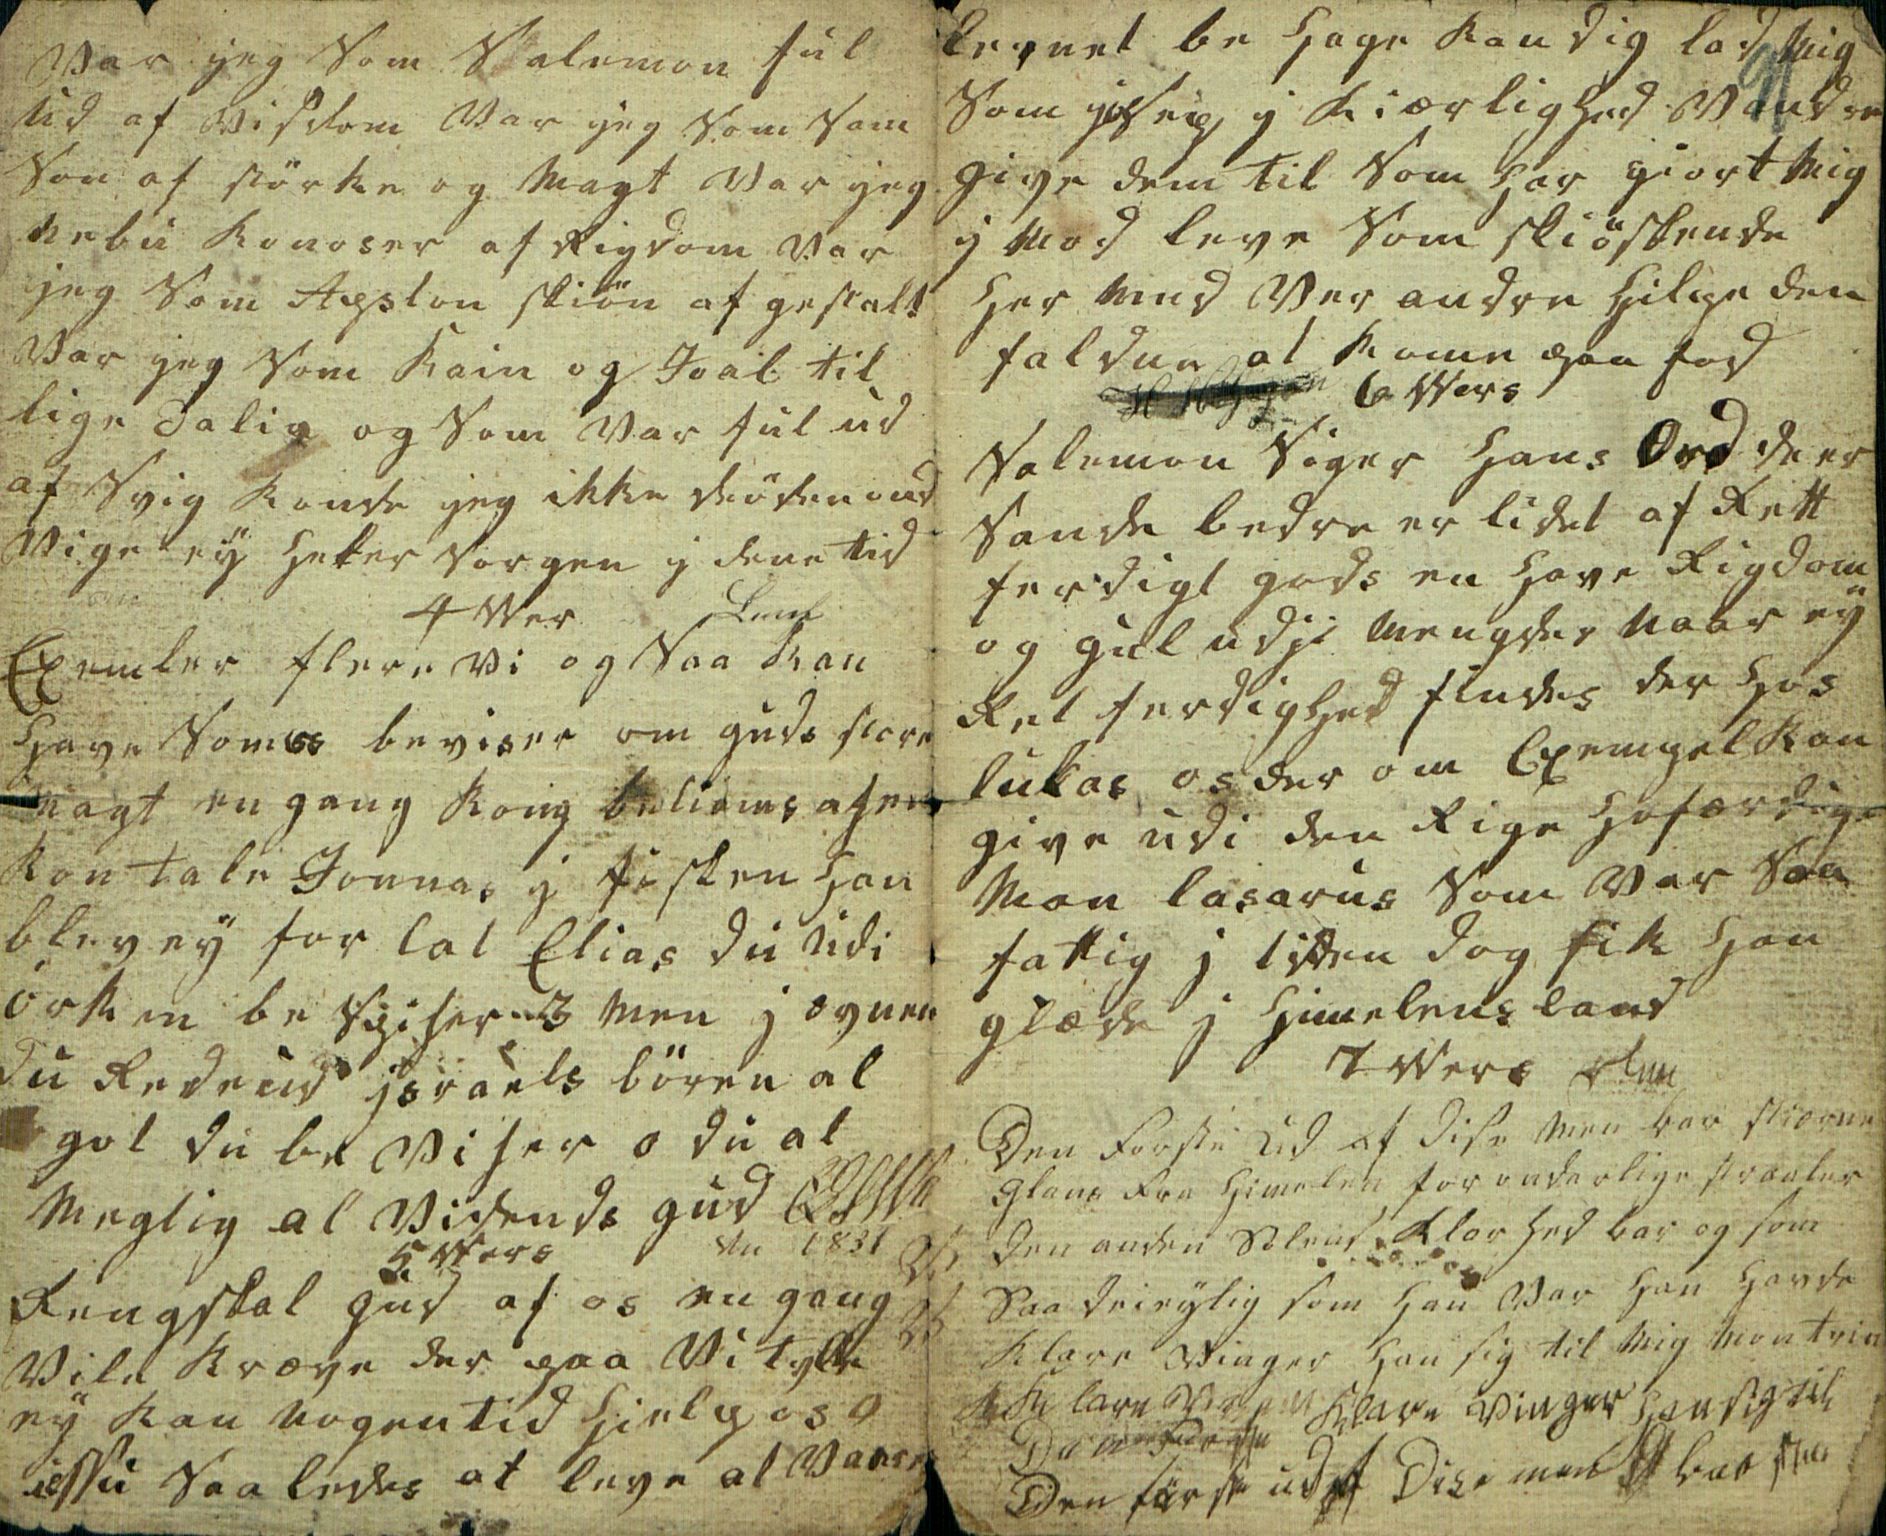 Var jeg Som Salemon ful
ud af visdom Var jeg Som Sam
Son af störke og Magt Var jeg
Nebu Konoser af Rigdom Var
jeg Som Apslon skiön af gestalt
Var jeg Som Kain og Joab til
lige Falig og Som Var ful ud
af Svig Konde jeg ikke döden und
Vige eÿ heler Sorgen i dene tid
4 Ver
Exemler flere Vi og Saa Kan
Have Som os beviser om guds store
magt en gang Kong beliams asen
Kon tale Jonnas i fisken Han
blev eÿ for lat Elias du udi
örken be Spiser 3 Men j ovnen
du Reded jsraels bören al
got du be Viser o du al
Meglig al Vidends gud
5 Vers
du 1831
Rengskal gud af os en gang
Vile Kræve der paa Vi tyle
eÿ Kan nogen tid Hielp os o
jessu Saaledes at leve at Vores
levnet be Hage Kan dig lad Mig
91
Som josep j Kiærlighed Vandre
give dem til Som Har giort Mig
j Mod leve Som skiöskende
Her Med Ver andre Hilpe den
faldne at Kome paa fod
6 Vers
Salemon Siger Hans Ord de er
Sande bedre er lidet af Rett
ferdigt gods en Have Rigdom
og gul udji Mengder Naar eÿ
Ret ferdighed findes der Hos
lukas os der om Exempel Kan
give udi den Rige Hofærdige
Man lasarus Som Var Saa
fattig j tiden dog fik Han
glæde j Himelens land
7 Vers
Den Förste ud af dise Men bar stierne
glans Fra Himelen forunderlige straaler
den anden Solens Klarhed bar og som
Saa deieÿlig som Han Var Han Havde
Klare Vinger Han sig til Mig Mon trin
Klare Vinger Han sig til
Den förste ud af Dise men bar